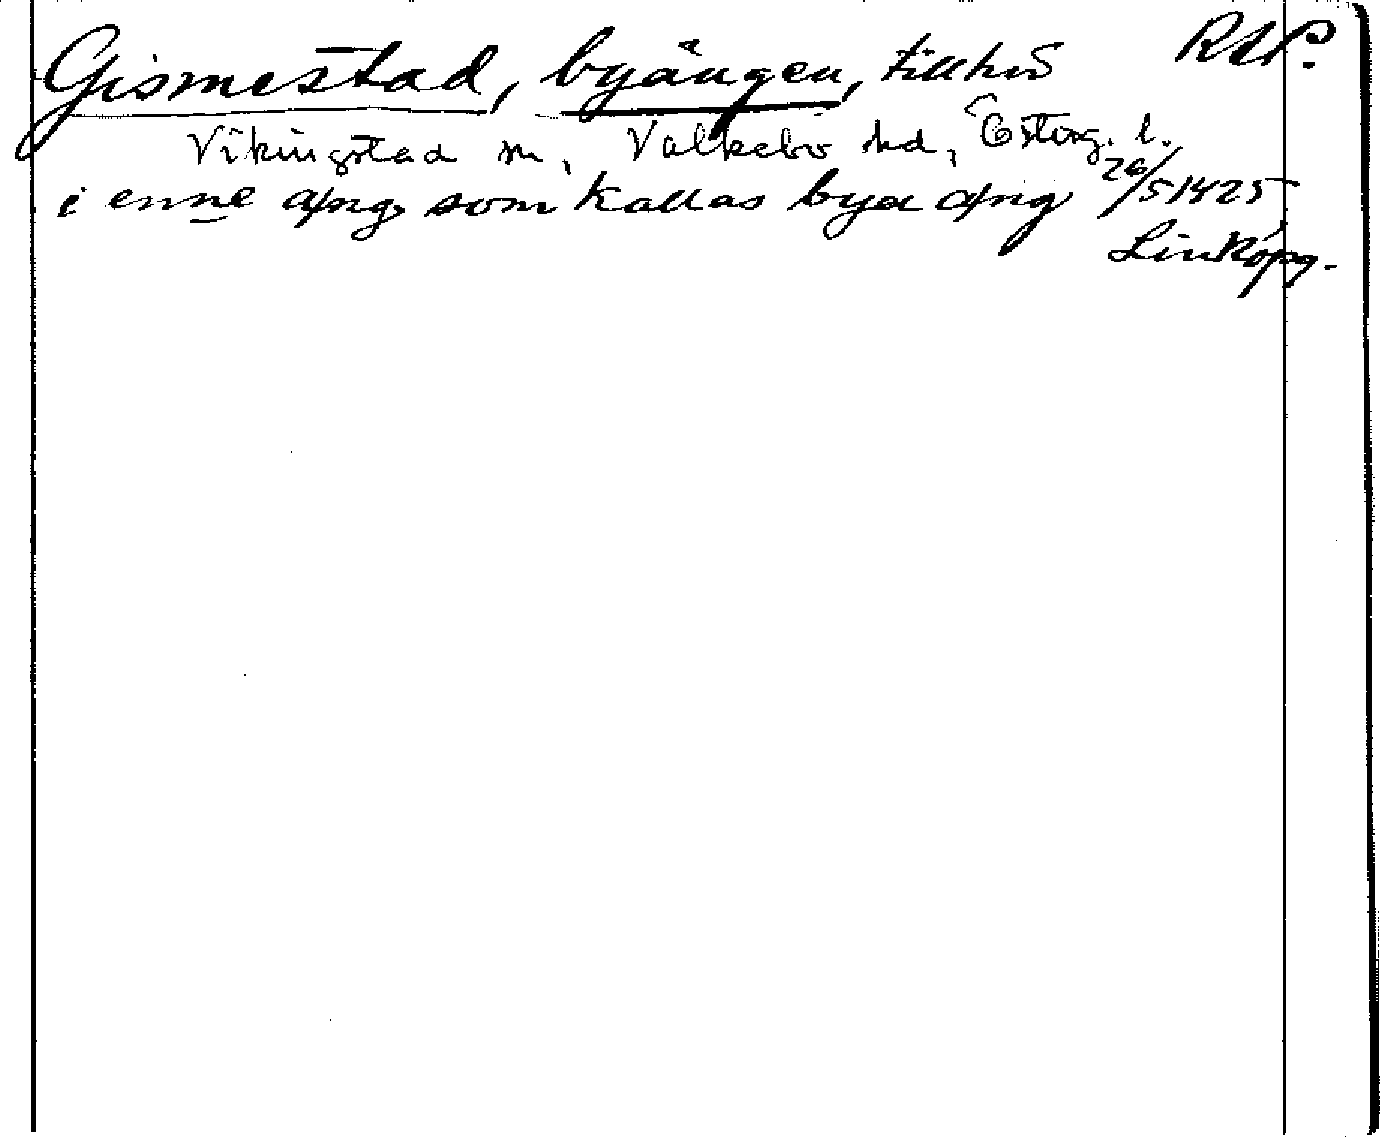 Gismestad, byängen, tillhör RAP.
Vikingstad sn, Valkebo hd, Östergl. l.
i enne æng som kallas bya æng 26/5 1425
Linköpg.